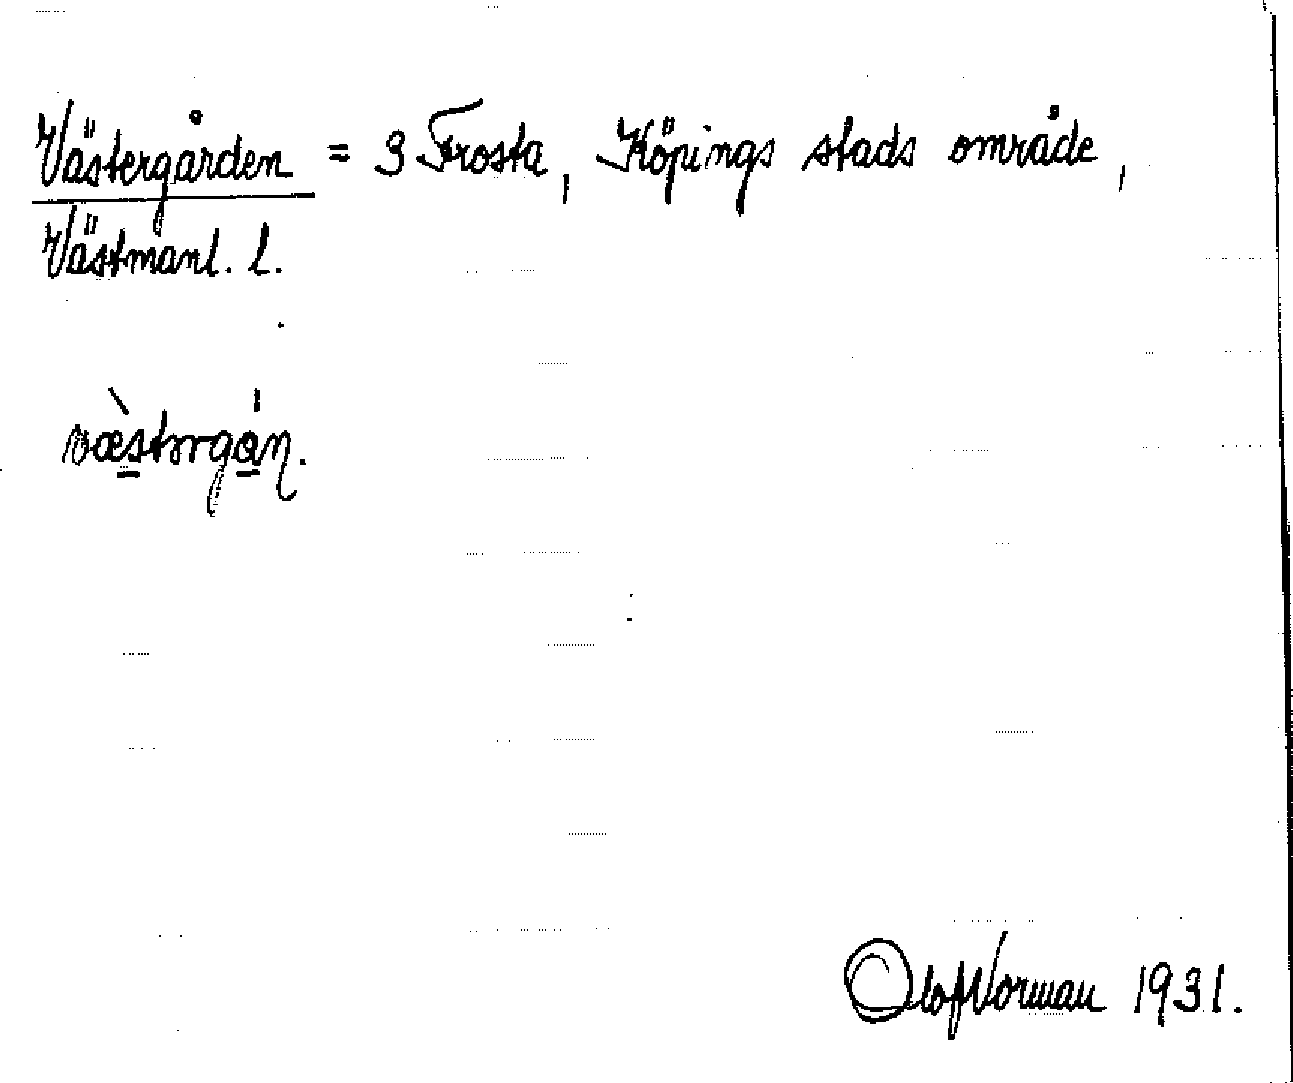 Västergården = 3 Frosta, Köpings stads område,
Västmanl. l.
væ̀stərgán.
Olof Norman 1931.